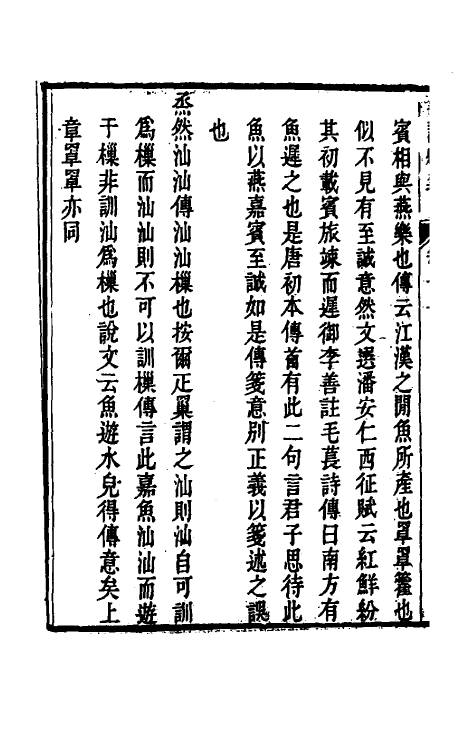 賓相與燕樂也傳云江漢之閒魚所產也罩罩籗也
似不見有至誠意然文選潘安仁西征賦云紅鮮紛
其初載賓旅竦而遲御李善註毛萇詩傳曰南方有
魚遲之也是唐初本傳首有此二句言君子思待此
魚以燕嘉賓至誠如是傳箋意別正義以箋述之誤
也
烝然汕汕傳汕汕樔也按爾正巢謂之汕則汕自可訓
爲樔而汕汕則不可以訓樔傳言此嘉魚汕汕而遊
于樔非訓汕爲樔也說文云魚遊水皃得傳意矣上
章罩罩亦同